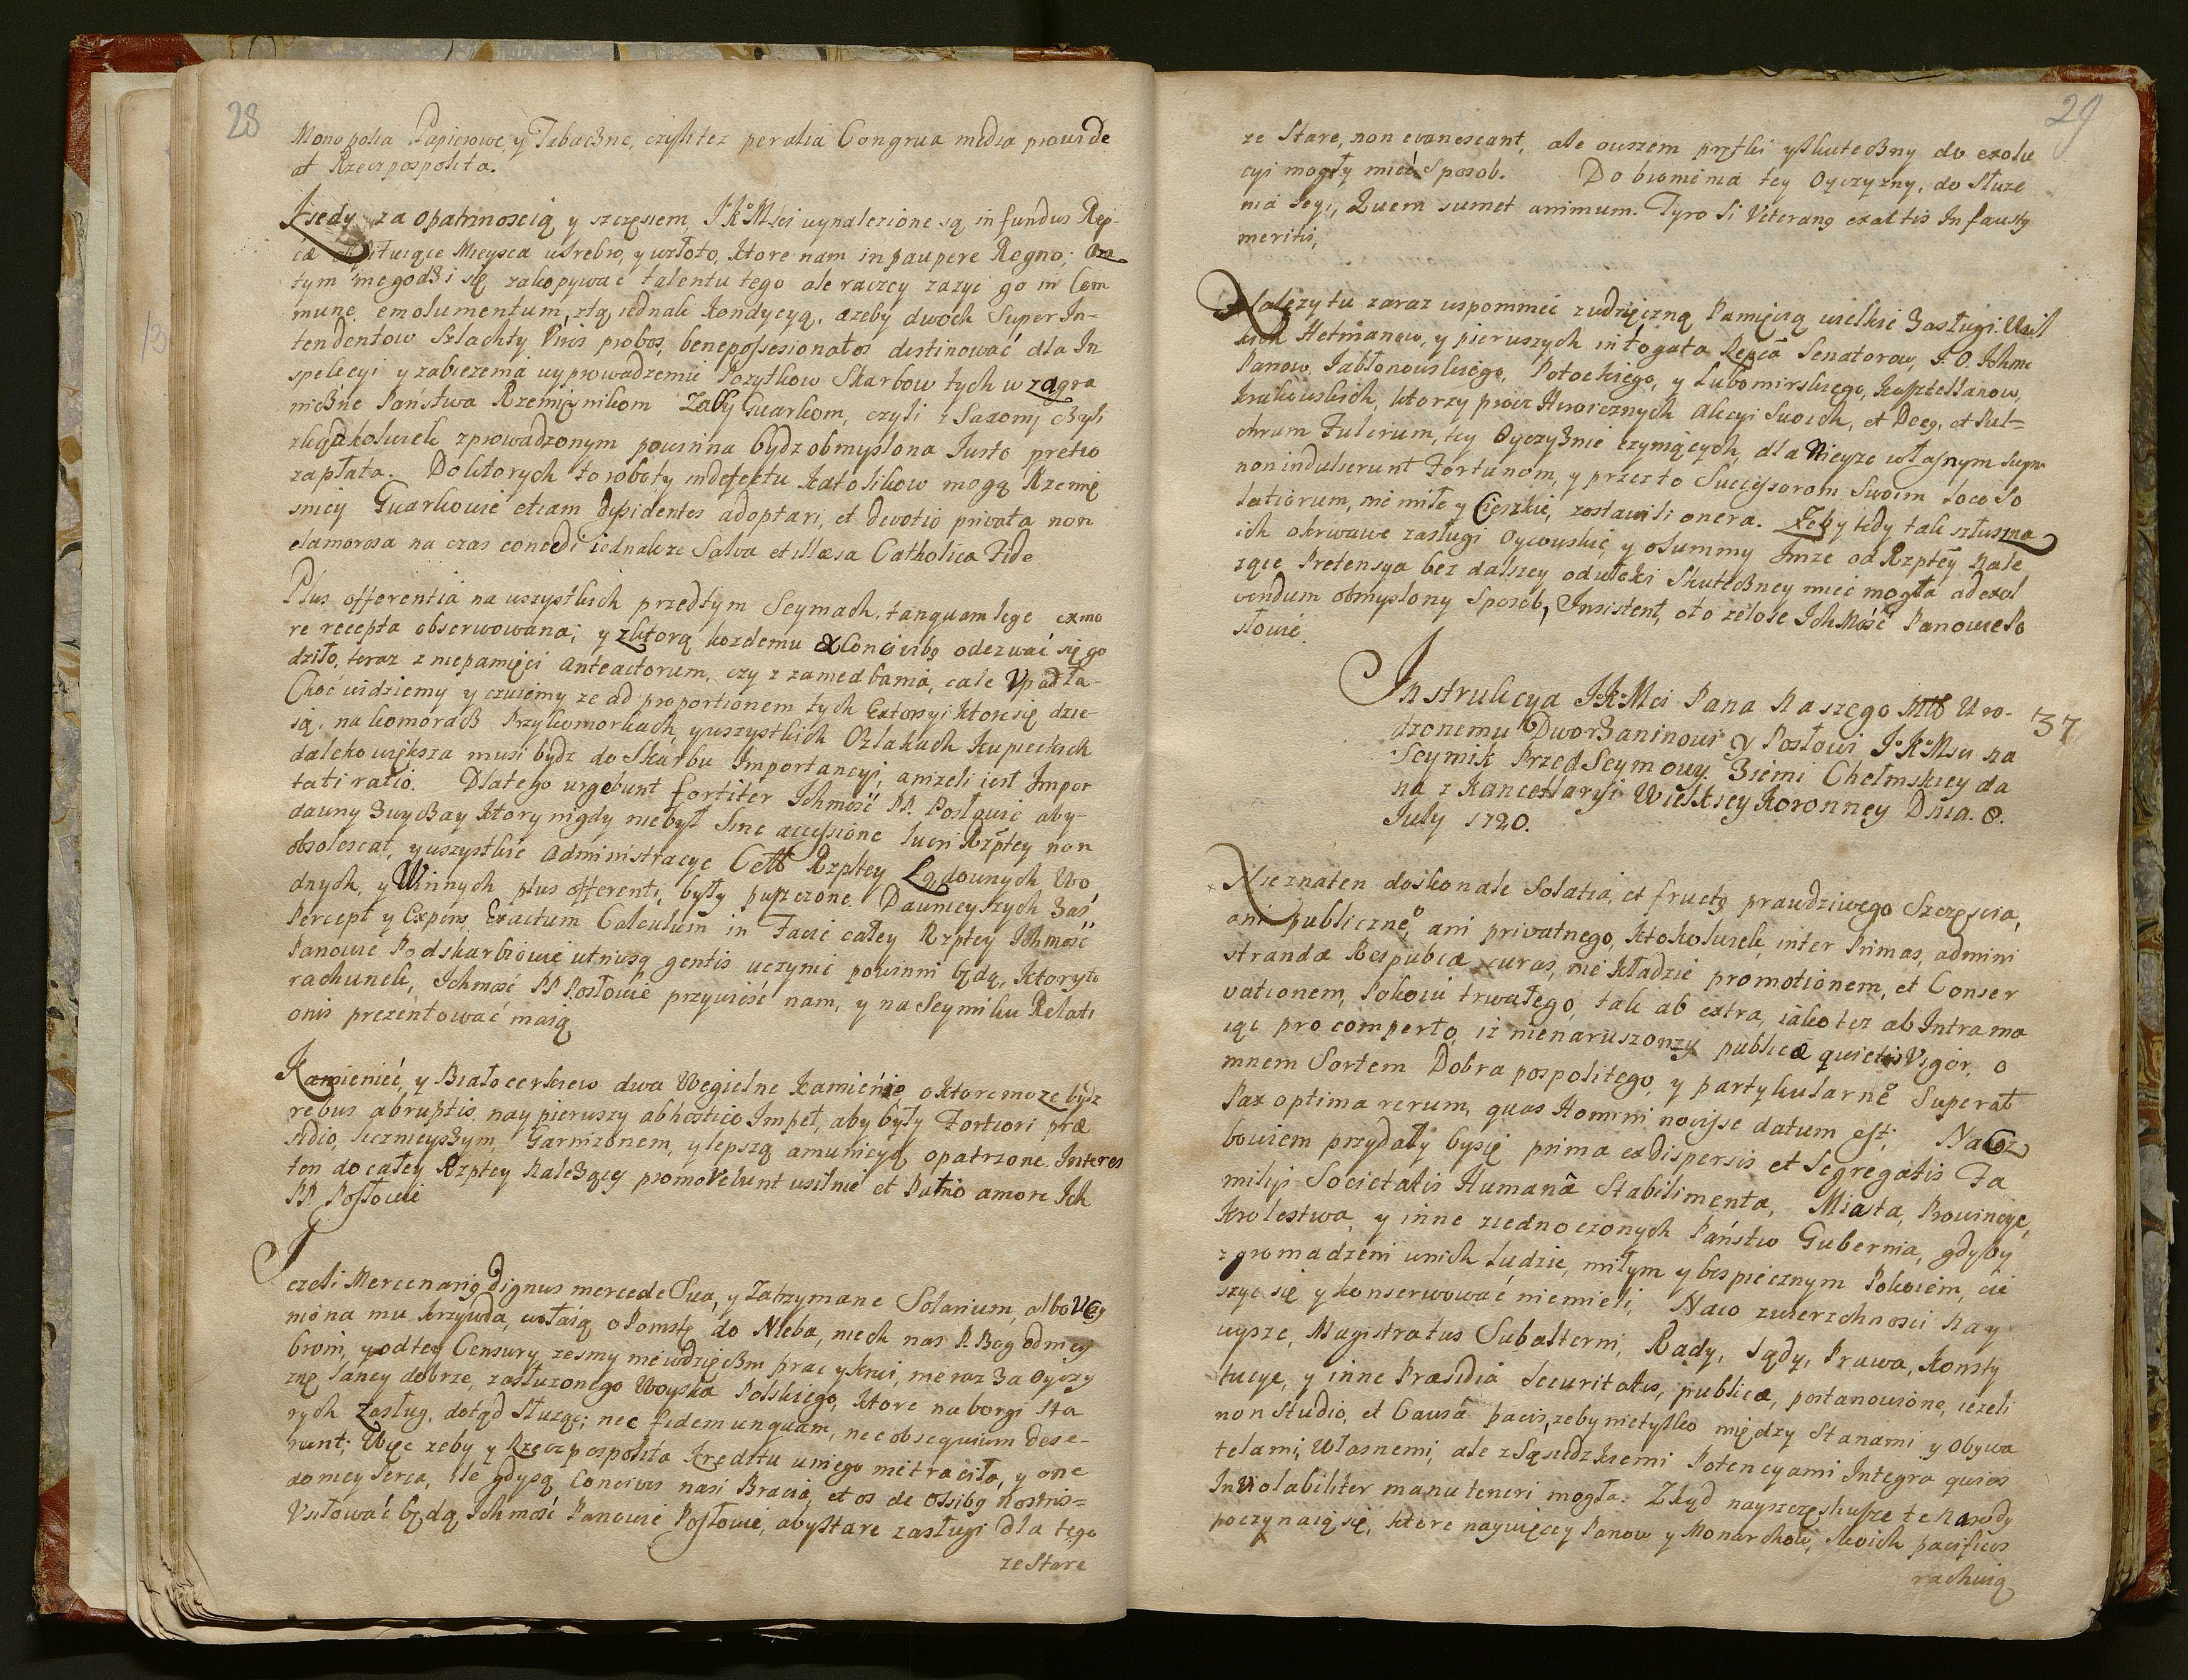 28
Monopolia Papierowe, y Tabaczne, czyli tez per alia Congrua media provide
at Rzeczpospolita.
Kiedy za opatrznoscią y szczęsiem, J K Mści wynalezione są in fundus Rep
cæ obfituiące Mieysca w srebro, y w złoto, ktore nam in paupere Regno;
tym niegodzi się zakopywac talentu tego ale raczey zazyc go in Com
mune emolumentum, ztą iednak kondycyą, azeby dwoch Super In-
tendentow Szlachty Viris probos, benepossesionatos destinować dla In
spekcyi y zabiezenia wyprowadzeniu Pozytkow Skarbow tych w zagra
niczne Państwa Rzemięsnikom Zaby Gwarkom, czyli z Saxonij czyli
zkądkolwiek zprowadzonym powinna bydz obmyslona Justo pretio
zapłata. Do ktorych to roboty in defectu Katolikow mogą Rzemię
snicy Gwarkowie etiam Dyssidentes adoptari, et devotio privata non
clamorosa na czas concedi iednakze Salva et illæsa Catholica Fide
Plus offerentia na wszystkich przedtym Seymach, tanquam lege ex mo
re recepta obserwowana; y z ktorą kozdemu ex Concivibg odezwać się go
dziło, teraz z niepamięci anteactorum, czy z zaniedbania, cale Upadła-
Choć widziemy y czuiemy ze ad proportionem tych Extorsyi ktore się dzie-
są, na komorach Przykomorkach, y wszystkich Szlakach Kupieckich
daleko większa musi bydz do Skarbu Importancyi, anizeli iest Impor
tati ratio. Dlatego urgebunt fortiter Ichmość PP. Posłowie aby-
dawny Zwyczay ktory nigdy niebył Sine accessione lucri Rzptey non
obsolescat, y wszystkie administracye Cełł Rzpltey Lądownych Wo
dnych, y Winnych plus offerenti, były puszczone. Dawnieyszych zaś
Percept y Expens Exactum Calculum in Facie całey Rzptey Ichmość
Panowie Podskarbiowie utriusq gentis uczynić powinni będą, Ktory to
rachunek, Ichmość PP Posłowie przywieść nam, y na Seymiku Relati
onis prezentować maią
Kamienieć, y Białocerkiew dwa Węgielne Kamienie, o ktore moze bydz
rebus abruptis nay pierwszy ab hostico Impet, aby były Fortiori præ
sidio, licznieyszym, Garnizonem, y lepszą amunicyą opatrzone. Interes
ten do całey Rzptey nalezący promovebunt usilnie et Patrio amore Ich
PP Posłowie
Jezeli Mercenarig dignus mercede Sua, y Zatrzymane Solarium, albo Uczy
niona mu krzywda, wołaią o Pomstę do Nieba, niech nas P. Bog od niey
broni, y od tey Censury, zesmy niewdzięczni prac y krwi, nie raz za Oyczy
znę laney dobrze, zasłuzonego Woyska Polskiego, ktore na borgi sta
rych zasług, dotąd słuząc; nec fidem unquam, nec obsequium dese-
runt; Więc zeby y Rzeczpospolita Kredttu u niego nie traciła, y one
do niey serca, ile gdy są Concives nasi Bracia, et os de ossibg Nostris=
Usiłować będą Ichmość Panowie Posłowie, aby stare zasługi dla tego
ze stare
29
ze Stare, non evanescant, ale owszem prętki y skuteczny do exolu
cyi mogły mieć Sposob. Do bronienia tey Oyczyzny, do Słuze
nia Jeyi, Quem sumet animum. Tyro Si Veterang exaltis In fausty
meritis,
Nalezy tu zaraz wspomniec z wdzięczną Pamięcią wielkie Zasługi Wiel
kich Hetmanow, y pierwszych in togata Repcā Senatorow, J. O. Ichmc
Panow, Jabłonowskiego, Potockiego, y Lubomirskiego, Kasztellanow
Krakowskich, ktorzy procz Heroicznych akcyi Swoich, et Decg, et Pul=
chrum Fulcrum, tey Oyczyznie czyniących, dla Nieyze własnym
non indulserunt Fortunom, y przez to Successorom Swoim loco So
latiorum, nie miłe y Cięzkie, zostawili onera. Zeby tedy tak słuszna
ich okrwawe zasługi Oycowskie, y o summy Imze od Rzptey nale
zące Pretensya bez dalszey odwłoki Skuteczney miec mogła ad exol
vendum obmyslony Sposob, Insistent, oto zelose Ich Mość Panowie Po
słowie.
Instrukcya J. K. Mci Pana Naszego Młł Uro-
dzonemu Dworzaninowi y Posłowi J. K. Msci na
Seymik PrzedSeymowy Ziemi Chełmskiey da
na z Kancellaryi Wielkiey Koronney Dnia. 8.
July 1720.
37
Nie znaten doskonale Solatia, et fructg prawdziwego Szczęscia,
ani publicznego, ani privatnego, ktokolwiek, inter Primas, admini
strandæ Reipublcæ curas, nie kładzie promotionem, et Conser
vationem, Pokoiu trwałego, tak ab extra, iako tez ab Intra ma
iąc pro comperto, iz nienaruszony publicæ quietis Vigor, o
mnem Sortem Dobra pospolitego, y partykularnego Superat
Pax optima rerum, quas Homini novisse datum est; Na coz
bowiem przydały by się prima ex dispersis et Segregatis Fa
milyi Societatis Humanæ Stabilimenta, Miasta, Prowincye,
Krolestwa, y inne ziednoczonych Państw Gubernia, gdyby
zgromadzeni wnich ludzie, miłym y bespiecznym Pokoiem, cie
szyc się y konserwować niemieli, Naco zwierzchnosci Nay
wysze, Magistratus Subalterni, Rady, Sądy, Prawa, Konsty
tucye, y inne Præsidia securitatis, publicæ, postanowione, iezeli
non Studio, et Causâ pacis, zeby nietylko między Stanami y Obywa
telami, Własnemi, ale z Sąsiedzkiemi Potencyami Integra quies
Inviolabiliter manuteneri mogła. Zkąd nayszczęsliwsze te Narody
poczynaią się, ktore naywięcey Panow y Monarchow, swoich pacificos
rachuią